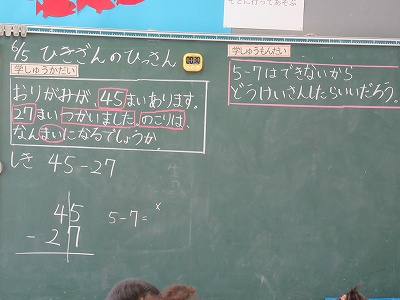 6/5 ひきざんのひっさん
学しゅうかだい
おりがみが、45まいあります。
27まいつかいました。のこりは、
なんまいになるでしょうか。
しき 45-27
45
-27
5-7=
x
学しゅうもんだい
5-7はできないから
どうけいさんしたらいいだろう。